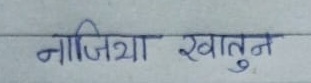 नाजिया खातुन